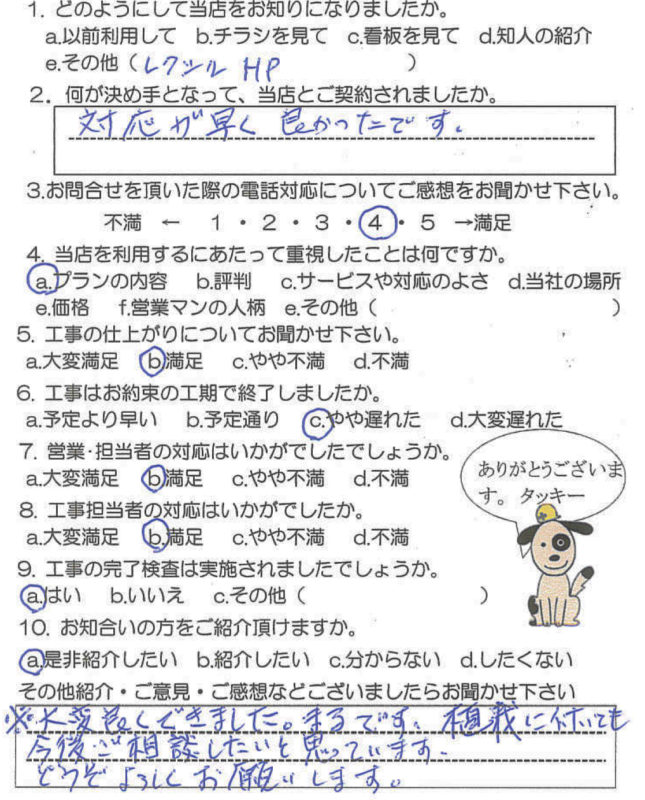 1. どのようにして当店をお知りになりましたか。
a.以前利用して b.チラシを見て c.看板を見て d.知人の紹介
e.その他（レクシル HP ）
2. 何が決め手となって、当店とご契約されましたか。
対応が早く良かったです。
3.お問合せを頂いた際の電話対応についてご感想をお聞かせ下さい。
不満 ← 1 ・ 2 ・ 3 ・ 4 ・ 5 →満足
4. 当店を利用するにあたって重視したことは何ですか。
a.プランの内容 b.評判 c.サービスや対応のよさ d.当社の場所
e.価格 f.営業マンの人柄 e.その他（ ）
5. 工事の仕上がりについてお聞かせ下さい。
a.大変満足 b満足 c.やや不満 d.不満
6. 工事はお約束の工期で終了しましたか。
a.予定より早い b.予定通り c.やや遅れた d.大変遅れた
7. 営業・担当者の対応はいかがでしたでしょうか。
a.大変満足 b満足 c.やや不満 d.不満
8. 工事担当者の対応はいかがでしたか。
a.大変満足 b.満足 c.やや不満 d.不満
ありがとうございま
す。 タッキー
9. 工事の完了検査は実施されましたでしょうか。
a.はい b.いいえ c.その他（ ）
10. お知合いの方をご紹介頂けますか。
a.是非紹介したい b.紹介したい c.分からない d.したくない
その他紹介・ご意見・ご感想などございましたらお聞かせ下さい
※大変良くできました。まるです。植栽に付いても
今後ご相談したいと思っています。
どうぞよろしくお願いします。